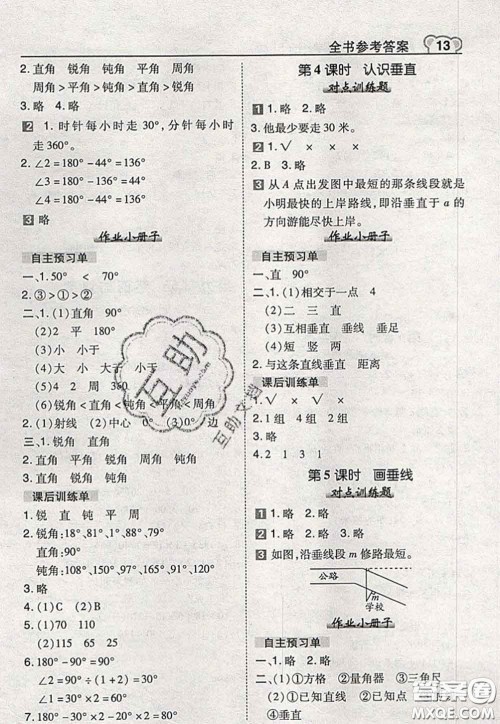 全书参考答案 13
2. 直角 锐角 钝角 平角 周角
周角>平角>钝角>直角>锐角
3. 略 4. 略
2 1. 时针每小时走30°,分针每小时
走360°。
2. ∠2=180°-44°=136°
∠3=180°-44°=136°
∠4=180°-136°=44°
3 略
作业小册子
自主预习单
一、1. 50° < 70°
2. ③>①>②
二、1. (1)直角 90°
(2)2 平 180°
(3)小 小于
(4)大 小 大于 小于
(5)4 2 周 360
(6)锐角<直角<钝角<平角<周角
2. (1)射线 (2)中心 0° (3)0° 边
三、1. 锐角 直角
2. 直角 锐角 直角 锐角 钝角
直角 直角 直角 钝角 钝角
课后训练单
1. 锐 直 钝 平 周
2. 锐角:18°、1°、32°、89°、54°
直角:90°
钝角:108°、150°、97°、165°、120°
3. 略
4. (1)C (2)B
5. (1)70 110
(2)115 65 25
6. 180°-90°=90°
(180°-90°)÷(1+2)=30°
180°-30°×2-90°=30°
7. 180°-30°×2=180°-30°×2
第4课时 认识垂直
对点训练题
1 1. 略 2. 略
3. 他最少要走30米。
2 1. √ × × ×
2. B 3. 略
3 从A点出发图中最短的那条线段就是
小明最快的上岸路线,即沿垂直于a的
方向游能尽快上岸。
作业小册子
自主预习单
一、直 90°
二、1. (1)相交于一点 4
(2)二 三 直
(3)互相垂直 垂线 垂足
(4)短 竖 两
2. 与这条直线垂直 距离
课后训练单
1. √ × × √
2. 1组 4组 2组
3. 略
4. 2 1 3 1
第5课时 画垂线
对点训练题
1 1. 略 2. 略
2 1. 略 2. 略 3. 略
3 如图,沿垂线段m修路最短。
公路
m
学校
作业小册子
自主预习单
一、略
二、1. (1)①方格 ②量角器 ③三角尺
互助
互助文档
答案圈
MXQE.COM